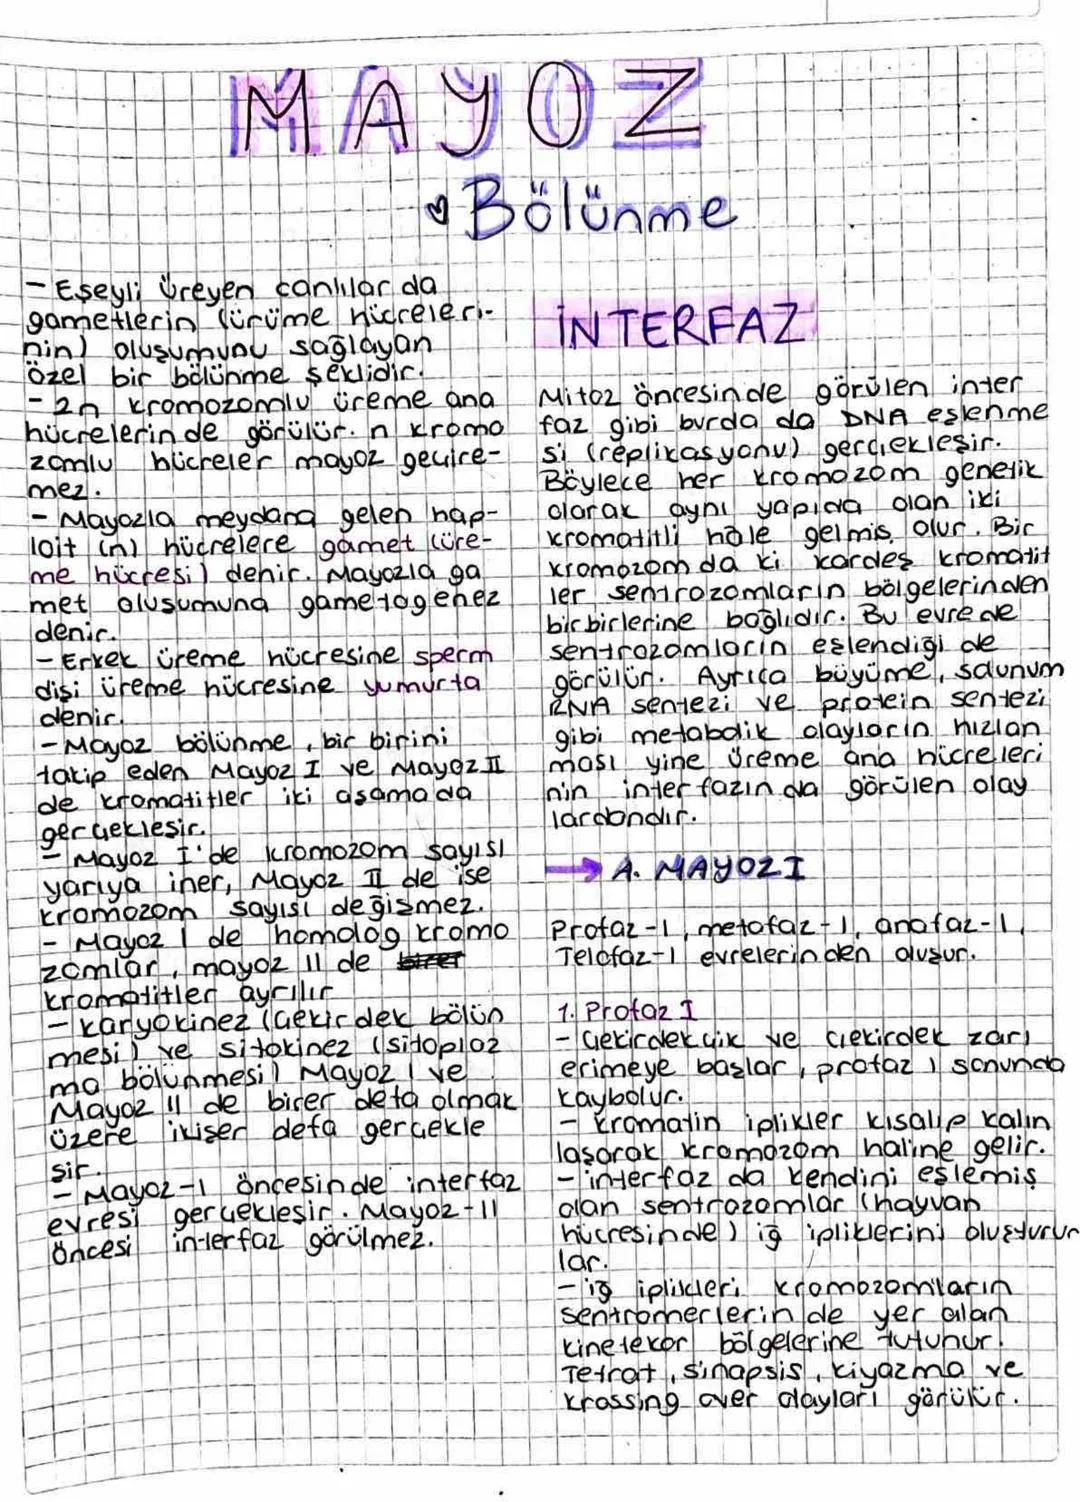 MAYOZ
Bölünme
- Eşeyli üreyen canlılar da
gametlerin (ürüme hücreleri-
nin) oluşumunu sağlayan
özel bir bölünme şeklidir.
- 2n kromozomlu üreme ana
hücrelerin de görülür. n kromo
zomlu hücreler mayoz geçire-
mez.
- Mayozla meydana gelen hap-
loit (n) hücrelere gamet (üre-
me hücresi) denir. Mayozla ga
met oluşumuna gametogenez
denir.
- Erkek üreme hücresine sperm
dişi üreme hücresine yumurta
denir.
- Mayoz bölünme, bir birini
takip eden Mayoz I ve Mayoz II
de kromatitler iki aşamada
gerçekleşir.
- Mayoz I'de kromozom sayısı
yarıya iner, Mayoz II de ise
kromozom sayısı değişmez.
- Mayoz I de homolog kromo
zomlar, mayoz II de birer
kromatitler ayrılır
- Karyokinez (çekirdek bölün
mesi) ve sitokinez (sitoplaz
ma bölünmesi) Mayoz I ve
Mayoz II de birer defa olmak
üzere ikişer defa gerçekle
şir.
- Mayoz-I öncesinde interfaz
evresi gerçekleşir. Mayoz-II
öncesi interfaz görülmez.
İNTERFAZ
Mitoz öncesinde görülen inter
faz gibi burda da DNA eşlenme
si (replikasyonu) gerçekleşir.
Böylece her kromozom genetik
olarak aynı yapıda olan iki
kromatitli hale gelmiş olur. Bir
kromozom da ki kardeş kromatit
ler sentrozomların bölgelerinden
birbirlerine bağlıdır. Bu evre de
sentrozomların eşlendiği de
görülür. Ayrıca büyüme, solunum
RNA sentezi ve protein sentezi
gibi metabolik olayların hızlan
ması yine üreme ana hücreleri
nin interfazın da görülen olay
lardandır.
→ A. MAYOZ I
Profaz-I, metafaz-I, anafaz-I,
Telofaz-I evrelerinden oluşur.
1. Profaz I
- Çekirdekçik ve çekirdek zarı
erimeye başlar, profaz I sonunda
kaybolur.
- Kromatin iplikler kısalıp kalın
laşarak kromozom haline gelir.
- interfaz da kendini eşlemiş
olan sentrozomlar (hayvan
hücresinde) iğ ipliklerini oluşturur
lar.
- iğ iplikleri kromozomların
sentromerlerin de yer alan
kinetekor bölgelerine tutunur.
Tetrat, sinapsis, kiyazma ve
krossing over olayları görülür.